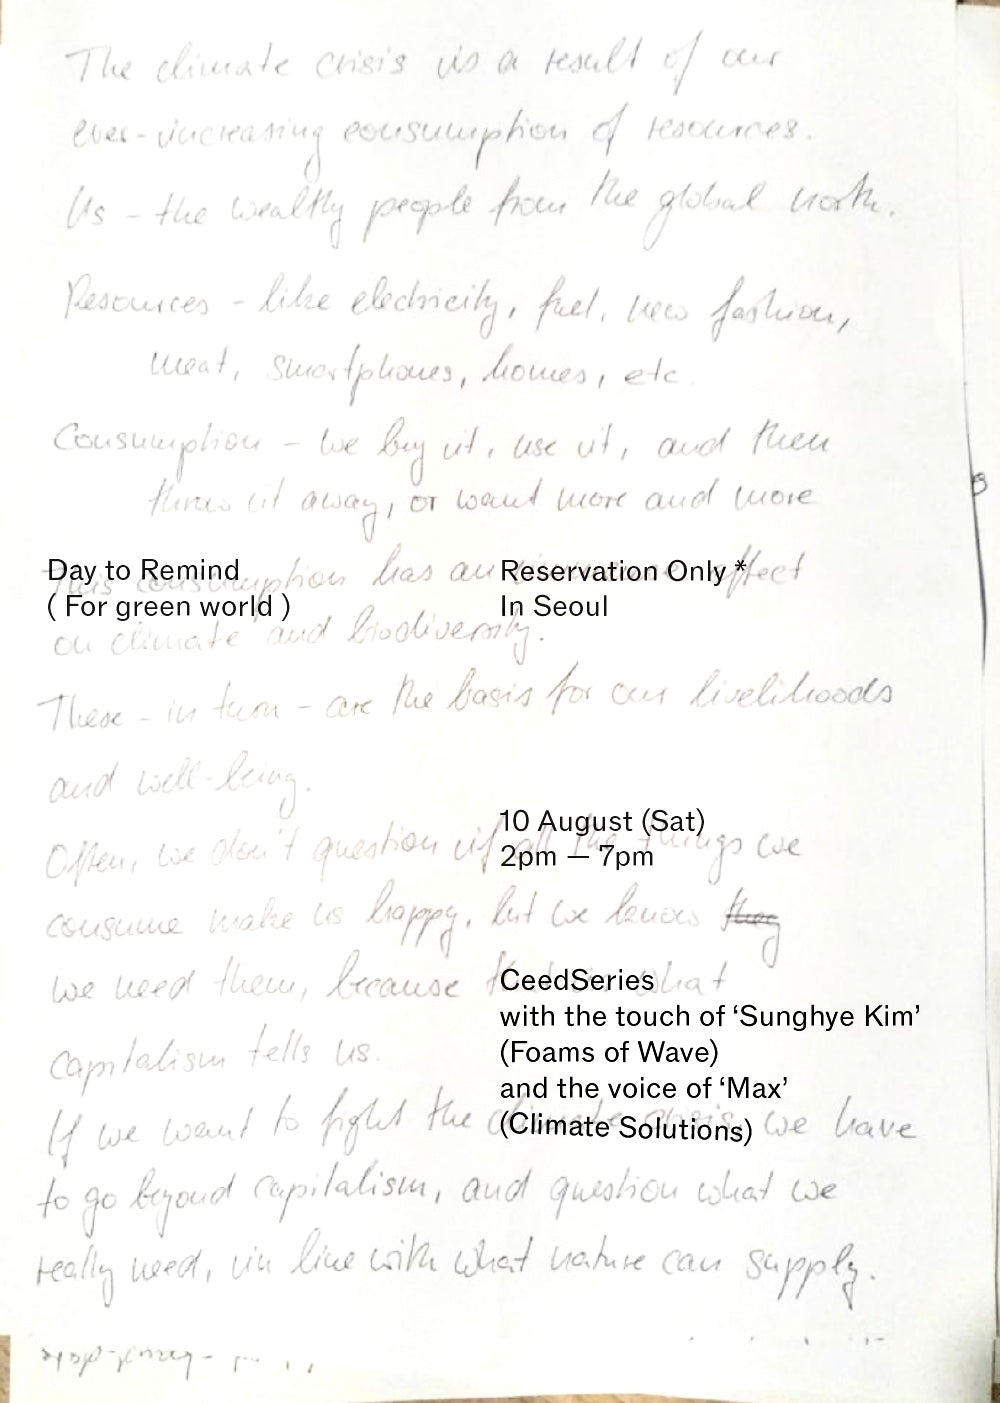 The climate crisis is a result of our
ever-increasing consumption of resources.
Us - the wealthy people from the global north.
Resources - like electricity, fuel, new fashion,
meat, smartphones, homes, etc.
Consumption - we buy it, use it, and then
throw it away, or want more and more
Day to Remind
( For green world )
Reservation Only *
In Seoul
This consumption has an effect
on climate and biodiversity.
These - in turn - are the basis for our livelihoods
and well-being.
10 August (Sat)
2pm — 7pm
Often, we don't question if all the things we
consume make us happy, but we know they
we need them, because what
CeedSeries
with the touch of ‘Sunghye Kim’
(Foams of Wave)
and the voice of ‘Max’
(Climate Solutions)
capitalism tells us.
If we want to fight the climate crisis, we have
to go beyond capitalism, and question what we
really need, in line with what nature can supply.